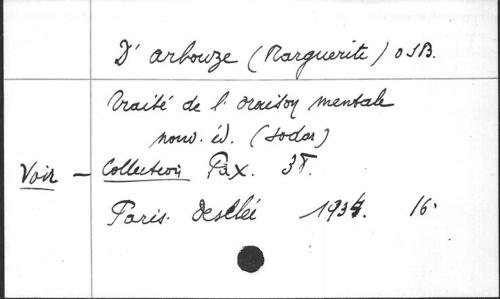 D' Arbouze (Marguerite) OSB.
Traité de l'oraison mentale
nouv. éd. (Sodar)
Voir – Collection Pax.
Paris. Desclée 1934. 16°